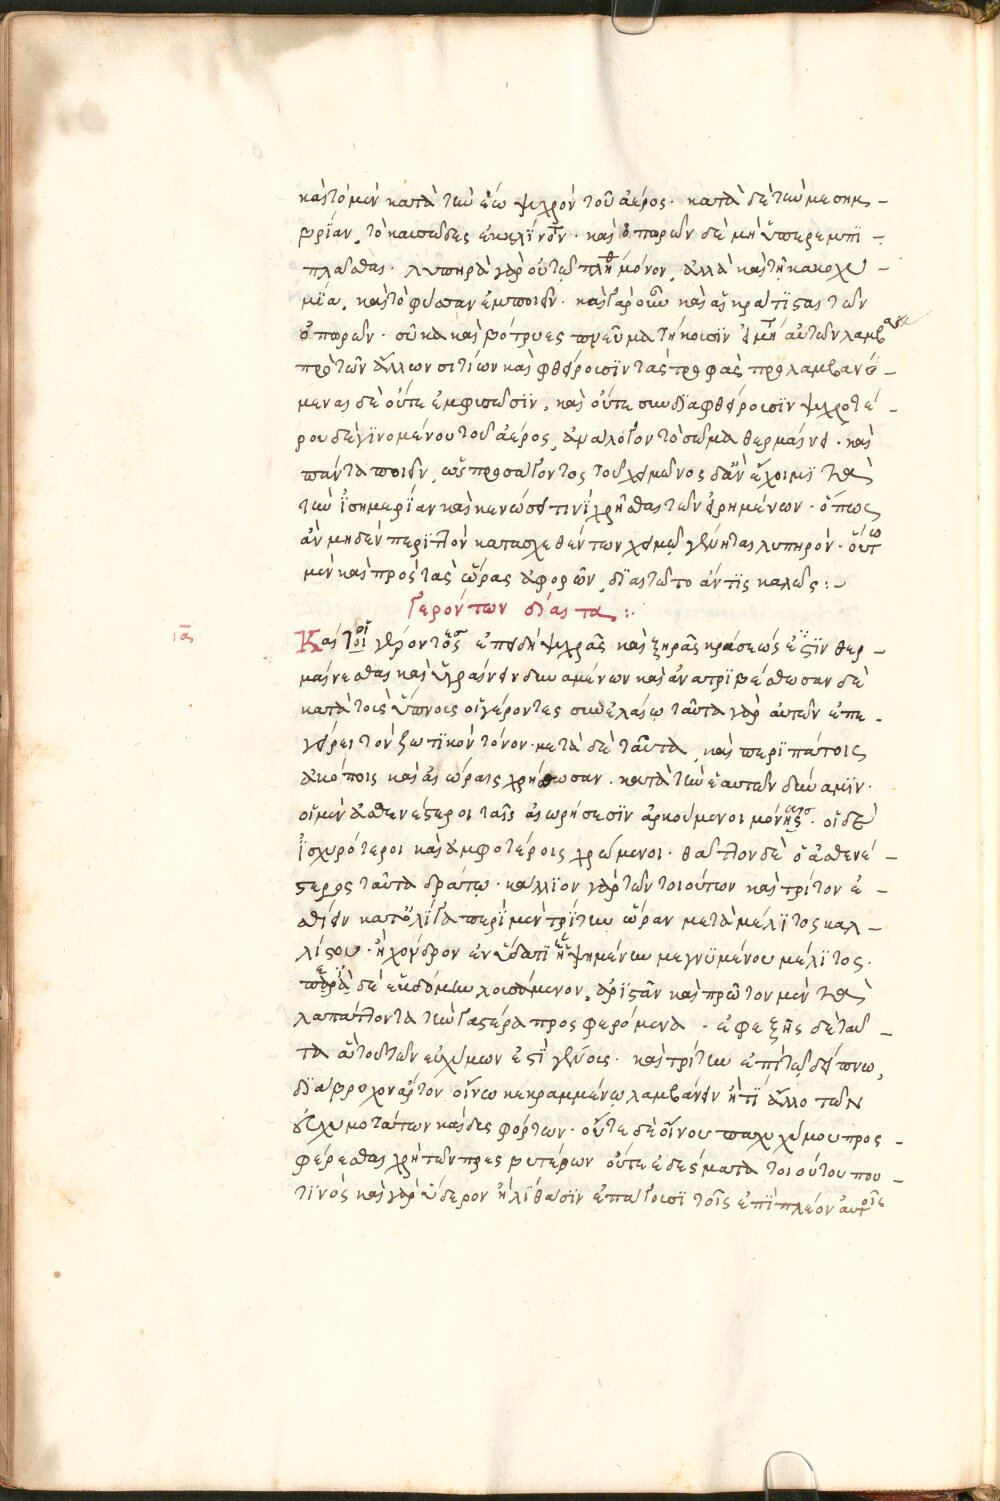 καὶ τὸ μὲν κατὰ τὴν ἕω ψυχρὸν τοῦ ἀέρος· κατὰ δὲ τὴν μεσημ-
βρίαν, τὸ καυσῶδες ἐκκλίνειν· καὶ ὀπωρῶν δὲ μὴ ὑπερεμπί-
πλασθαι· λυπηρὰ γὰρ οὐ τῷ πλήθει μόνον, ἀλλὰ καὶ τῇ κακοχυ-
μία, καὶ τὸ φῦσαν ἐμποιεῖν· καὶ γὰρ οὖν καὶ αἱ κράτισται τῶν
ὀπωρῶν· σῦκα καὶ βότρυες πνεῦμα τίκουσιν εἰ μὴ αὐτῶν λαμβ
πρὸ τῶν ἄλλων σιτίων καὶ φθείρουσιν τὰς τροφὰς προλαμβανό-
μεναι δὲ οὔτε ἐμφυσῶσιν, καὶ οὔτε συνδιαφθείρουσιν ψυχροτέ-
ρου δὲ γινομένου τοῦ ἀέρος, ἀνάλογον τὸ σῶμα θερμαίνει· καὶ
πάντα ποιεῖν, ὡς προσάγοντος τοῦ χειμῶνος
τὴν ἰσημερίαν καὶ κενώσει τινὶ χρῆσθαι τῶν εἰρημένων· ὅπως
ἂν μηδὲν περιττὸν κατασχεθὲν τῶν χειμῶ γένηται λυπηρόν· οὕτω
μὲν καὶ πρὸς τὰς ὥρας ἀφορῶν, διαιτῷτο ἄν τις καλῶς:-
Γερόντων δίαιτα:
ια Καὶ οἱ γέροντες ἐπειδὴ ψυχρᾶς καὶ ξηρᾶς κράσεώς εἰσιν θερ-
μαίνεσθαι καὶ ὑγραίνειν δυναμένων καὶ ἀνατριβέσθωσαν δὲ
κατὰ τοὺς ὕπνους οἱ γέροντες σὺν ἐλαίῳ ταῦτα γὰρ αὐτῶν ἐπε-
γείρει τὸν ζωτικὸν τόνον· μετὰ δὲ ταῦτα, καὶ περιπάτοις
ἀκόποις καὶ αἰώραις χρήσθωσαν· κατὰ τὴν ἑαυτῶν δύναμιν·
οἱ μὲν ἀσθενέστεροι ταῖς αἰωρήσεσιν ἀρκούμενοι μόναις· οἱ δὲ
ἰσχυρότεροι καὶ ἀμφοτέροις χρώμενοι· θᾶττον δὲ ὁ ἀσθενέ-
στερος ταῦτα δράτω· κάλλιον γὰρ τῶν τοιούτων καὶ τρίτον ἐ-
σθίειν κατ' ὀλίγα περὶ μὲν τρίτην ὥραν μετὰ μέλιτος καλ-
λίστου· ἢ χόνδρον ἐν ὕδατι ἡψημένων μεγνυμένου μέλιτος·
περὶ δὲ ἑβδόμην λουσάμενον, ἀριστᾶν καὶ πρῶτον μὲν τὰ
λαπάττοντα τὴν γαστέρα προσφερόμενα· ἐφεξῆς δὲ ταῦ-
τα αὐτοῦ τῶν εὐχύμων ἐστὶ γένοις· καὶ τρίτην ἐπὶ τῷ δείπνω,
διάβροχον ἄρτον οἴνω κεκραμμένω λαμβάνειν ἤ τι ἄλλο τῶν
εὐχυμοτάτων καὶ δεσφόρτων· οὔτε δὲ οἴνου παχυχύμου προς-
φέρεσθαι χρὴ τῶν πρεσβυτέρων οὔτε ἐδέσματα τοιούτου που-
τινός καὶ γὰρ ὕδερον ἢ λίθασιν ἐπάγουσι τοῖς ἐπὶ πλέον αὐτοῖς